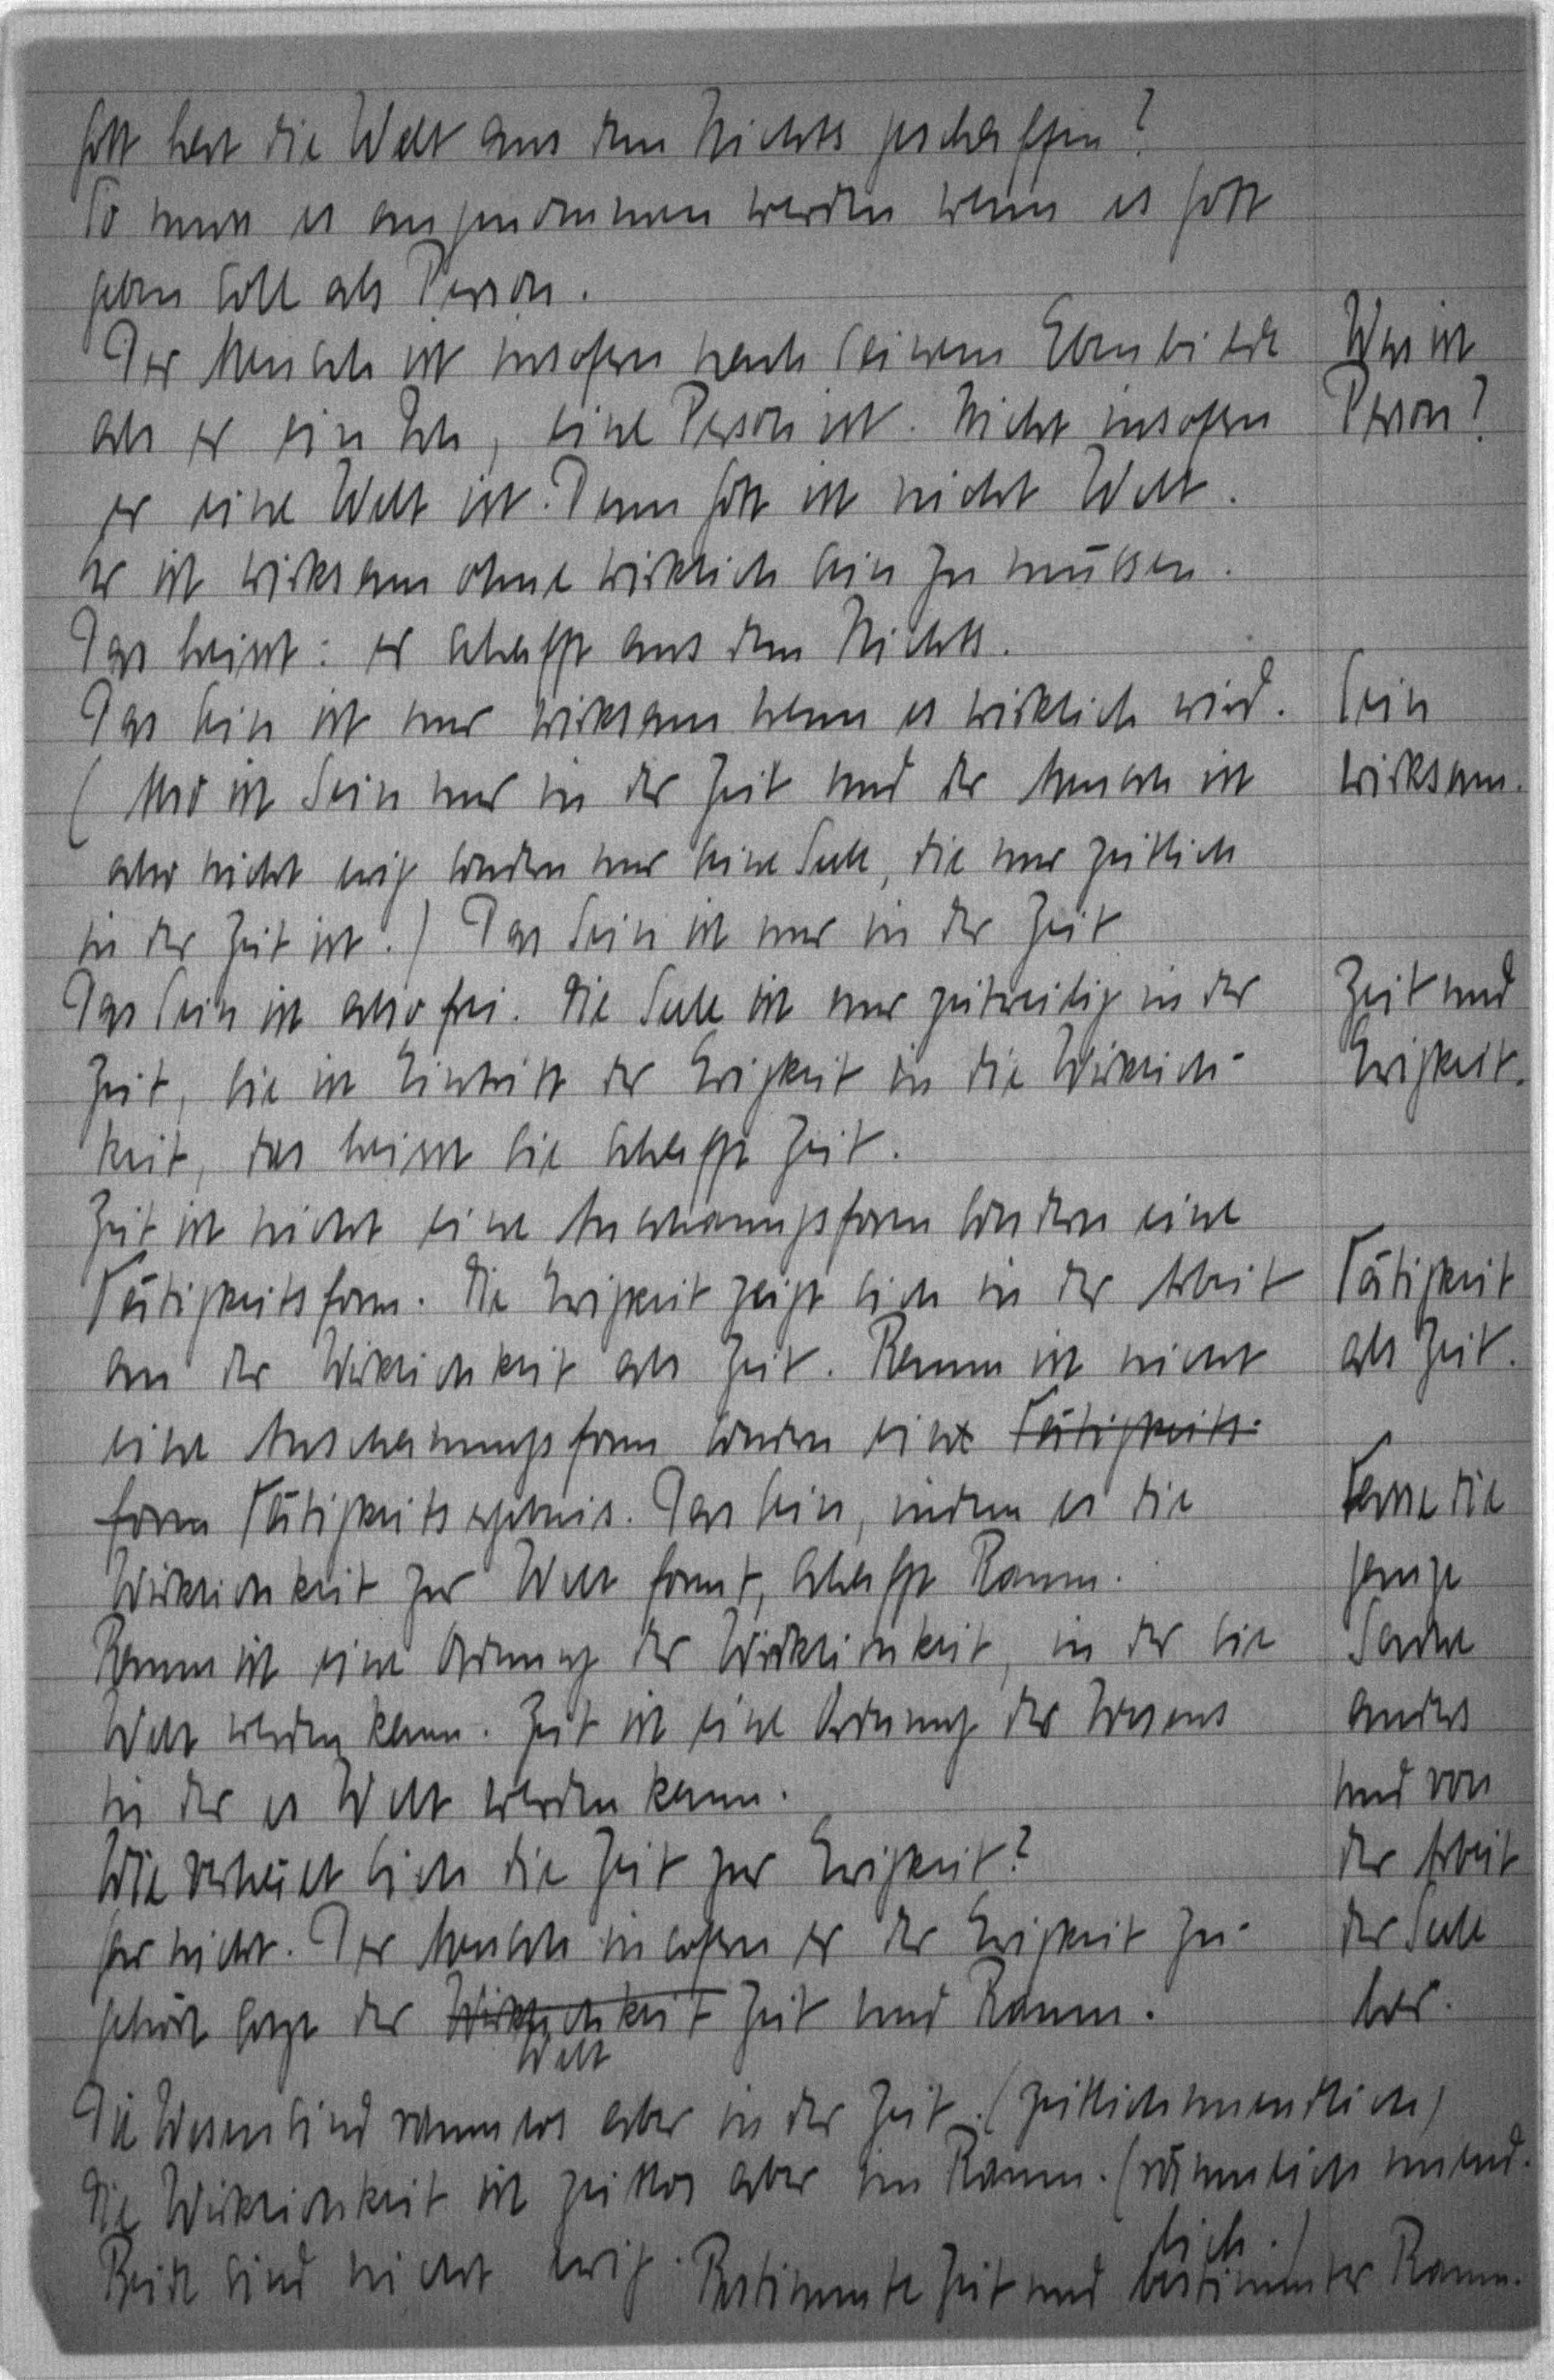 Gott hat die Welt aus dem Nichts geschaffen?
So muss es angenommen werden wenn es Gott
geben soll als Person.
Der Mensch ist insofern nach seinem Ebenbilde
als er ein Ich, eine Person ist. Nicht insofern
er eine Welt ist. Denn Gott ist nicht Welt.
Er ist wirksam ohne wirklich sein zu müssen.
Das heisst: er schafft aus dem Nichts.
Das Sein ist nur wirksam wenn es wirklich wird.
(Also ist Sein nur in der Zeit und der Mensch ist
also nicht ewig sondern nur seine Seele, die nur zeitlich
in der Zeit ist.) Das Sein ist nur in der Zeit
Das Sein ist also frei. Die Seele ist nur zeitweilig in der
Zeit, sie ist Eintritt der Ewigkeit in die Wirklich-
keit, das heisst sie schafft Zeit.
Zeit ist nicht eine Anschauungsform sondern eine
Tätigkeitsform. Die Ewigkeit zeigt sich in der Arbeit
an der Wirklichkeit als Zeit. Raum ist nicht
eine Anschauungsform sondern ein Tätigkeits-
form Tätigkeitsergebnis. Das Sein, indem es die
Wirklichkeit zur Welt formt, schafft Raum.
Raum ist eine Ordnung der Wirklichkeit, in der sie
Welt werden kann. Zeit ist eine Ordnung des Wesens
in der es Welt werden kann.
Wie verhält sich die Zeit zur Ewigkeit?
Gar nicht. Der Mensch insofern er der Ewigkeit zu-
gehört setzt der Wirklichkeit Zeit und Raum.
Welt
Die Wesen sind raumlos aber in der Zeit. (zeitlich unendlich)
Die Wirklichkeit ist zeitlos aber im Raum. (räumlich unend-
lich.)
Beide sind nicht ewig. Bestimmte Zeit und bestimmter Raum.
Was ist
Person?
Sein
wirksam.
Zeit und
Ewigkeit.
Tätigkeit
als Zeit.
die
ganze
Sache
anders
und von
der Arbeit
der Seele
her.